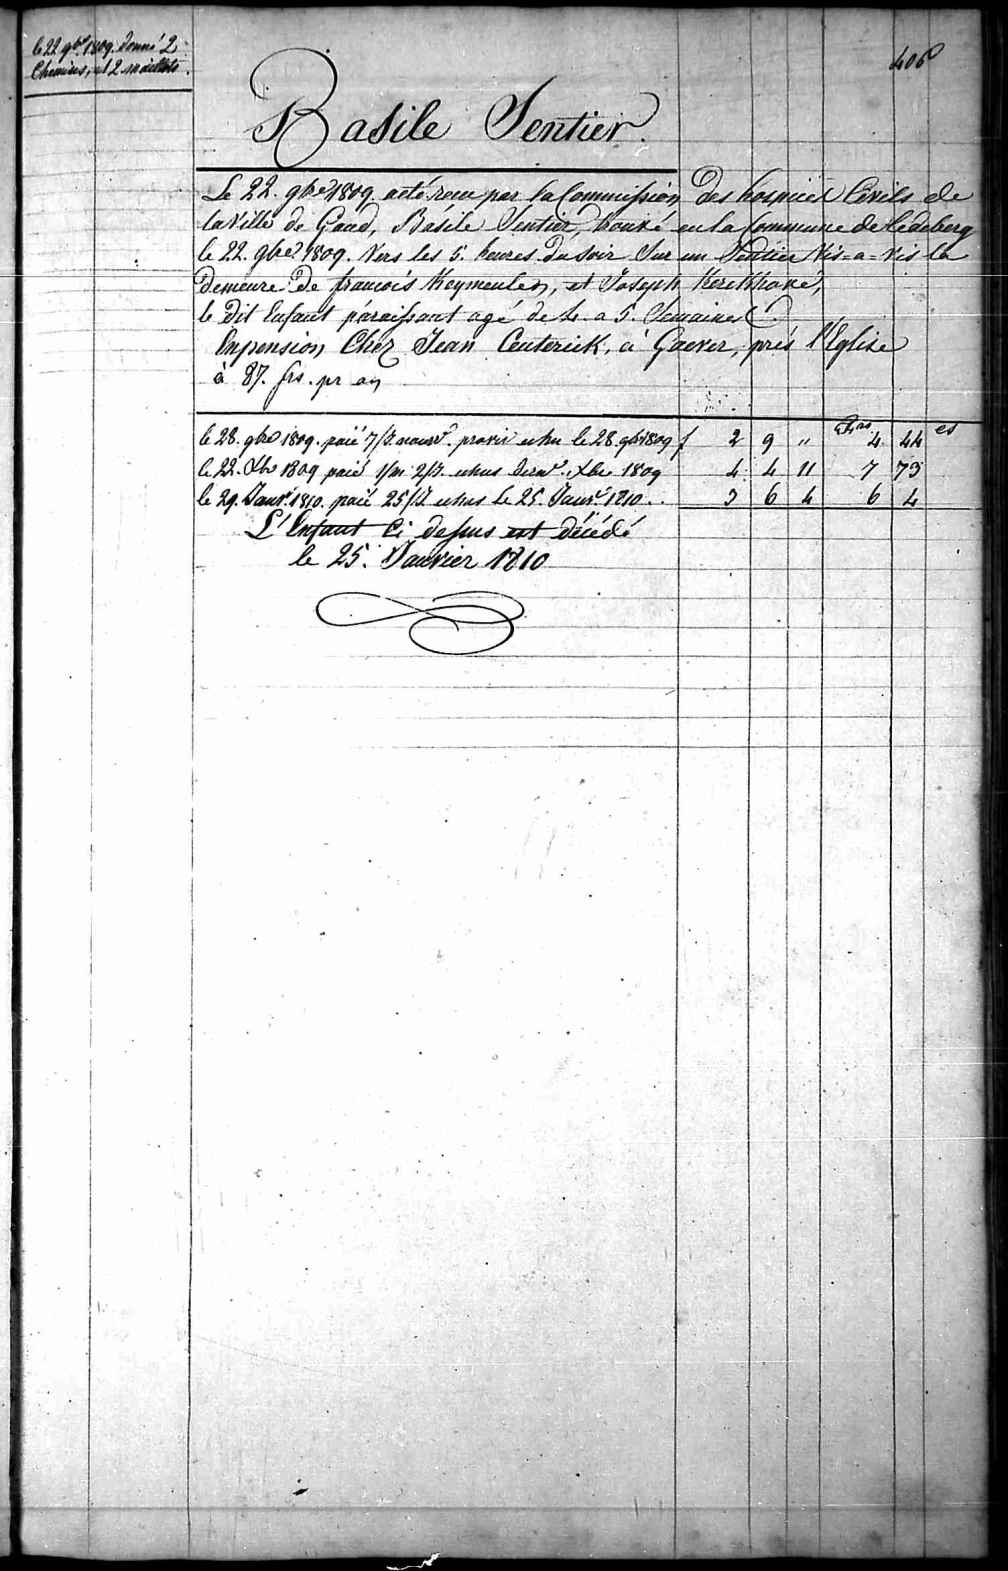 le 22 gbre 1809. donné 2
Chemises, et 2 maillots.
406
Basile Sentier.
Le 22. gbre 1809. a été recu par la Commission des hospices Civils de
la Ville de Gand, Basile Sentier, trouvé en la Commune de Ledeberg
le 22. gbre 1809. Vers les 5. heures du soir Sur un Sentier Vis=a=vis la
demeure de francois Meymeulen, et Joseph Kerckhove,
le dit Enfant paraissant agé de 4. a 5. Semaines
En pension Chez Jean Ceuterick, à Gaever, près l'Eglise
à 87. frs. pr an
le 28. gbre 1809. paié 7/J. nourre. provis echu le 28. gbre 1809 f 2 9 " frs 4 44 cs
le 22. Xbre 1809 paié 1/m 2/J. echus 1809 4 4 11 7 73
le 29. Janvr. 1810. paié 25/J echus le 25. Janvr. 1810. 3 6 4 6 4
L'Enfant Ci dessus est décédé
le 25. Janvier 1810